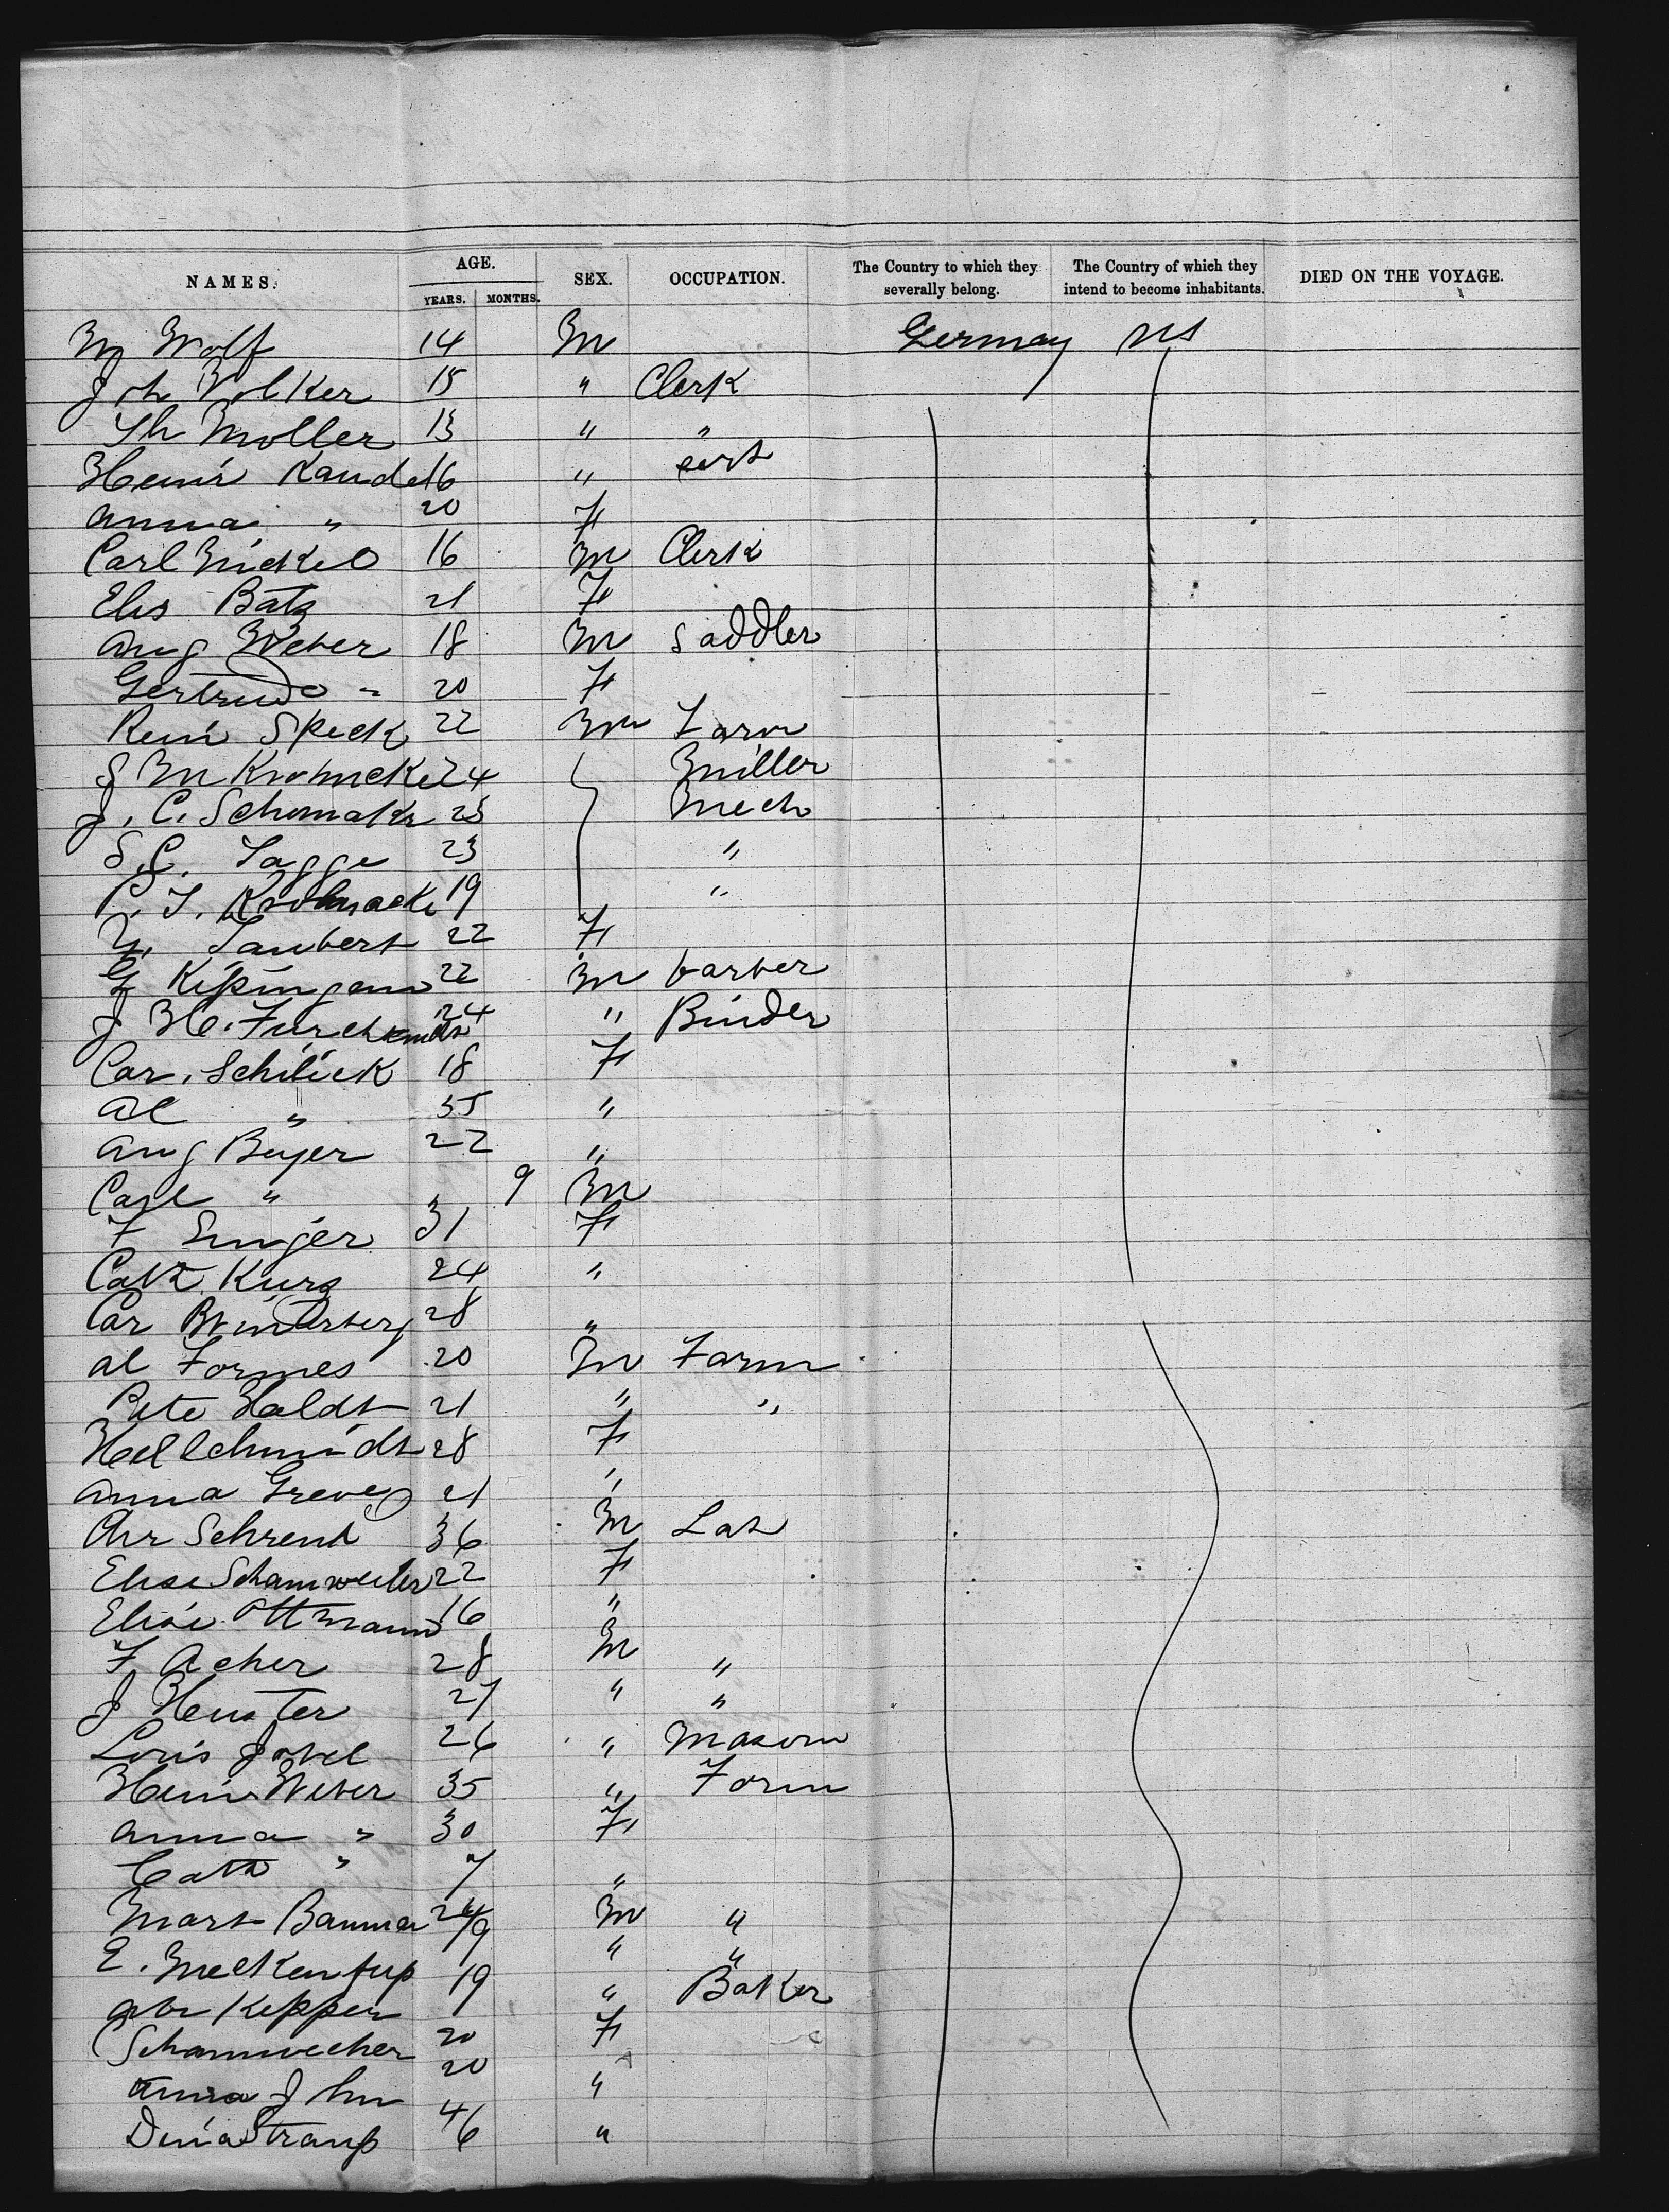 NAMES. AGE. YEARS. MONTHS. SEX. OCCUPATION. The Country to which they severally belong. The Country of which they intend to become inhabitants. DIED ON THE VOYAGE.
M Wolf 14 M Germany US
Joh Volker 15 " Clerk
Th Moller 13 " "
Heinr Kandel 16 "
Anna " 20 F
Carl Nickel 16 M Clerk
Elis Batz 21 F
Aug Weber 18 M Saddler
Gertrud " 20 F
Rein Speck 22 M Farm
J M Krohncke 24 Miller
J. C. Schomaker 23 Mech
S. C. Tagge 23 "
P. J. 19 "
Taubert 22 F
G 22 M barber
J H. 24 " Binder
Car. Schlick 18 F
Al " 55 "
Aug Beyer 22 "
Carl " 9 M
F Singer 31 F
Cath Kurz 24 "
Car 28 "
Al Formes 20 M Farm
Pete Holdt 21 " "
Hel Schmidt 28 F
Anna Greve 21 "
Chr Schrent 36 M Lab
Elise Schamweber 22 F
Elise Ottmann 16 "
F Acher 28 M "
J 27 " "
Louis Jobel 26 " Mason
Heinr Weber 35 " Farm
Anna " 30 F
Cath " 7 "
Mart 24 M "
E. 19 " "
Kepper 19 " Baker
Schamweber 20 F
Anna John 20 "
Dina Straup 46 "